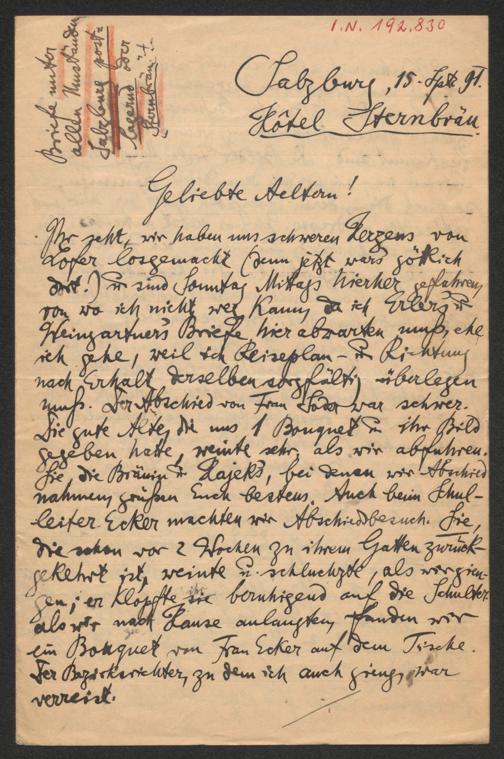 I.N. 192.830
Briefe unter
allen Umständen
Salzburg post-
lagernd oder
Sternbräu!
Salzburg, 15. Sept. 91.
Hôtel Sternbräu
Geliebte Aeltern!
Ihr seht, wir haben uns schweren Herzens von
Lofer losgemacht (denn jetzt wars göttlich
dort!) u sind Sonntag Mittags hierher gefahren,
von wo ich nicht weg kann, da ich Erlers u
Weingartners Briefe hier abwarten muß, ehe
ich gehe, weil ich Reiseplan- u Richtung
nach Erhalt derselben sorgfältig überlegen
muß. Der Abschied von Frau war schwer.
Die gute Alte, die uns 1 Bouquet u ihr Bild
gegeben hatte, weinte sehr, als wir abfuhren.
Sie, die Bräuin u Hajeks, bei denen wir Abschied
nahmen, grüßen Euch bestens. Auch beim Schul-
leiter Ecker machten wir Abschiedbesuch. Sie,
die schon vor 2 Wochen zu ihrem Gatten zurück-
gekehrt ist, weinte u. schluchzte, als wir gien-
gen; er klopfte ihr beruhigend auf die Schulter
als wir nach Hause anlangten, fanden wir
ein Bouquet von Frau Ecker auf dem Tische.
Der Bezirksrichter, zu dem ich auch gieng, war
verreist.